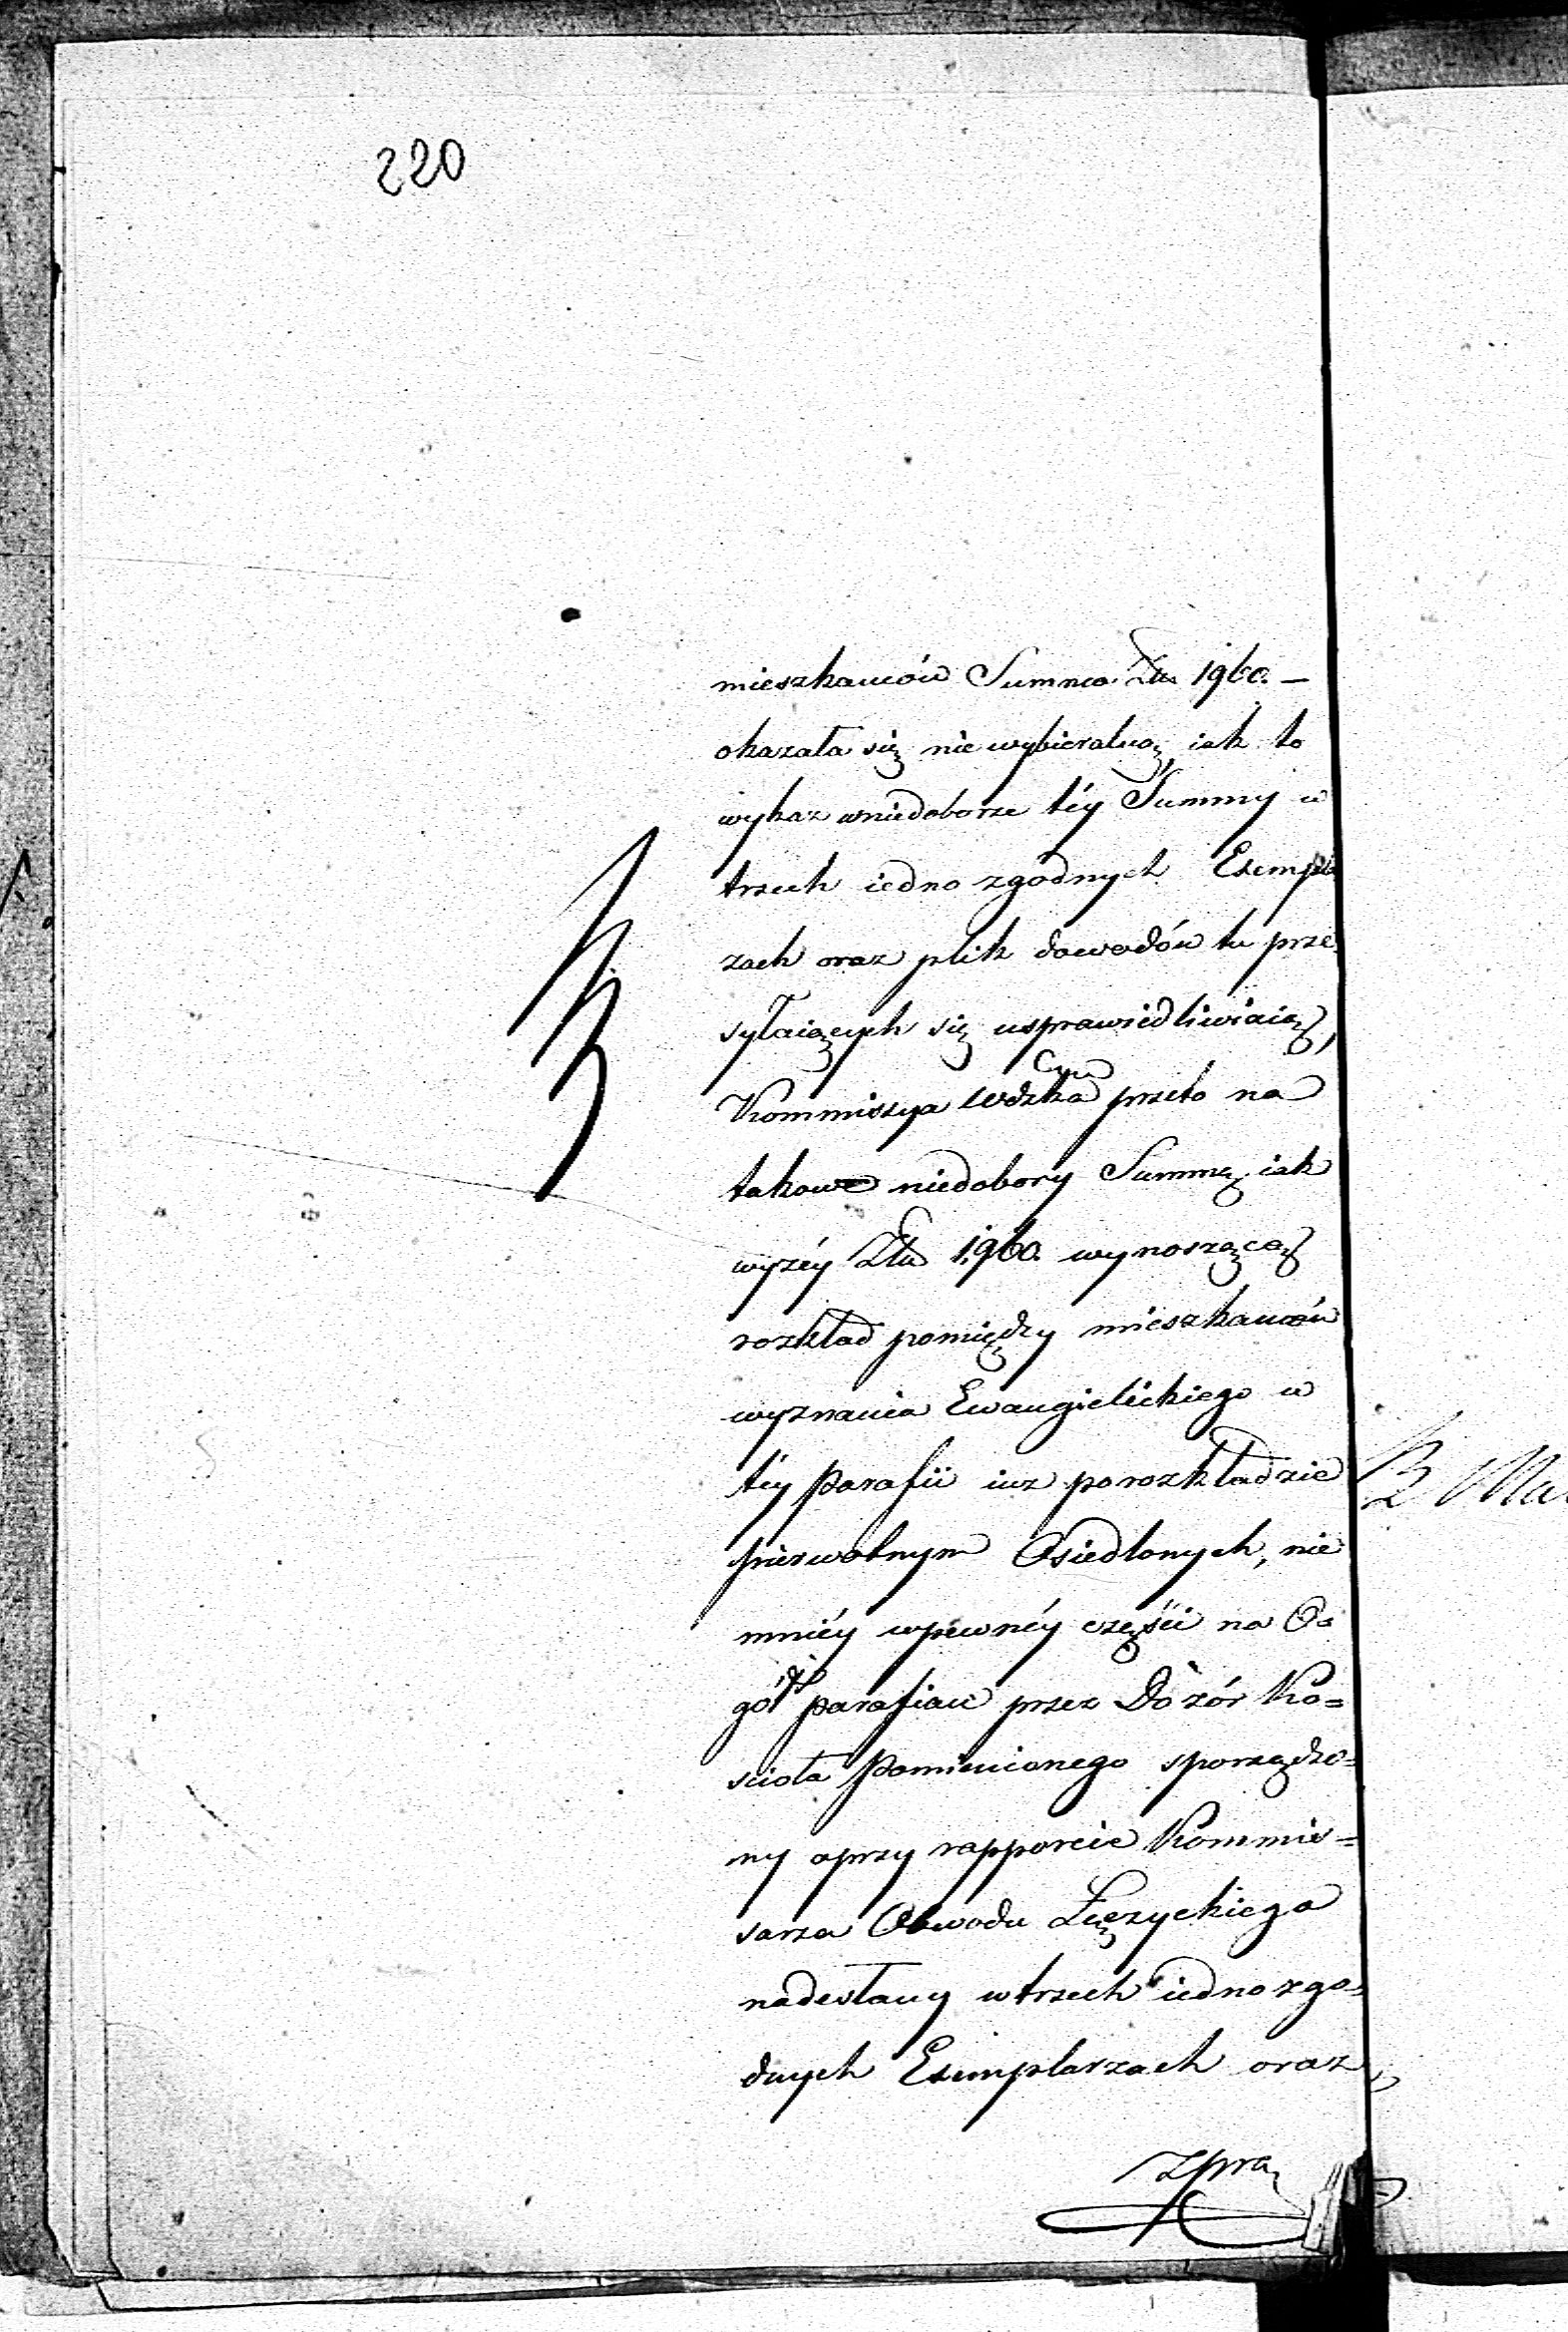 220
mieszkańców Summa Złu 1960. –
okazała się nie wybieralną, iak to
wykaz w niedoborze téy Summy w
trzech iedno zgodnych Exempla
rzach oraz plik dowodów tu prze
syłaiących się usprawiedliwiaią,
Kommissya Wdzka przeto na
takowe niedobory Summę iak
wyżéy Złu 1,960. wynoszącą
rozkład pomiędzy mieszkańców
wyznania Ewangielickiego w
téy Parafii iuz po rozkładzie
pierwotnym Osiedlonych, nie
mniéy w pewnéy części na O=
gół parafian przez Dozór Ko=
ścioła Pomienionego sporządzo=
ny a przy rapporcie Kommis=
sarza Obwodu Łęczyckiego
nadesłany w trzech iedno zgo=
dnych Exemplarzach oraz
z pra